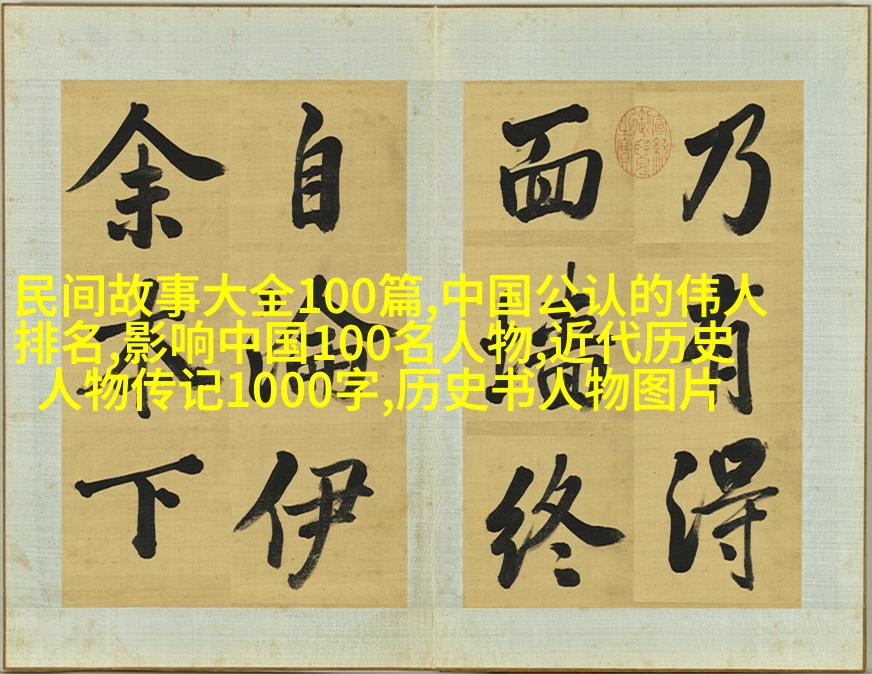 民间故事大全100篇,中国公认的伟人
排名,影响中国100名人物,近代历史
人物传记1000字,历史书人物图片
乃有得
面墙终
自伊
余不下